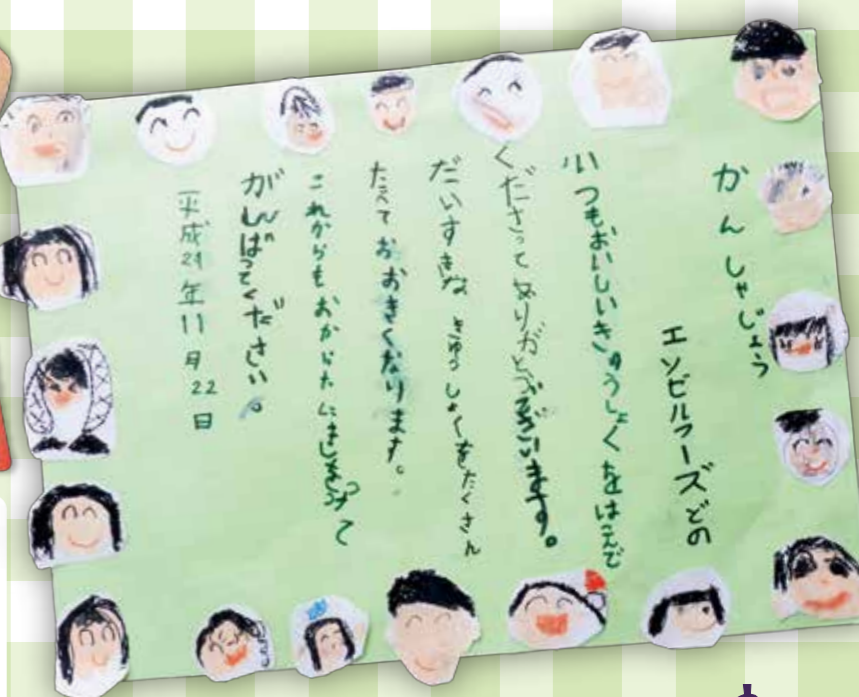 かんしゃじょう
エンゼルフーズどの
いつもおいしいきゅうしょくをはこんで
くださってありがとうございます。
だいすきな きゅうしょくをたくさん
たべて おおきくなります。
これからも おからだにきをつけて
がんばってください。
平成21年11月22日